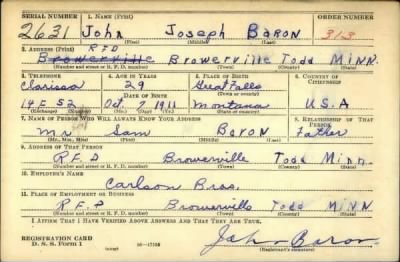 SERIAL NUMBER 1. NAME (Print) ORDER NUMBER
2631 John Joseph Baron 313
(First) (Middle) (Last)
2. ADDRESS (Print) R F D
Browerville Browerville Todd MINN.
(Number and street or R. F. D. number) (Town) (County) (State)
3. TELEPHONE 4. AGE IN YEARS 5. PLACE OF BIRTH 6. COUNTRY OF CITIZENSHIP
Clarissa 29 Great Falls
DATE OF BIRTH (Town or county)
14 F 52 Oct. 7 1911 Montana U.S.A
(Exchange) (Number) (Mo.) (Day) (Yr.) (State or country)
7. NAME OF PERSON WHO WILL ALWAYS KNOW YOUR ADDRESS 8. RELATIONSHIP OF THAT PERSON
Mr. Sam Baron Father
(Mr., Mrs., Miss) (First) (Middle) (Last)
9. ADDRESS OF THAT PERSON
R.F.D Browerville Todd Minn.
(Number and street or R. F. D. number) (Town) (County) (State)
10. EMPLOYER'S NAME
Carlson Bros.
11. PLACE OF EMPLOYMENT OR BUSINESS
R.F.D Browerville Todd MINN
(Number and street or R. F. D. number) (Town) (County) (State)
I AFFIRM THAT I HAVE VERIFIED ABOVE ANSWERS AND THAT THEY ARE TRUE.
REGISTRATION CARD John Baron
D. S. S. Form 1 (over) 16—17105 (Registrant's signature)